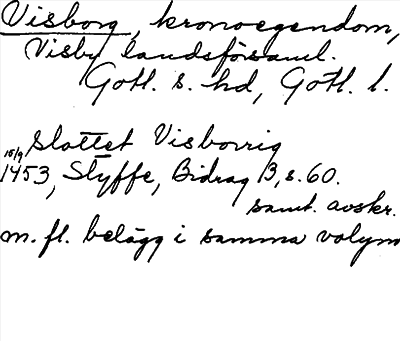 Visborg, kronoegendom,
Visby landsförsaml.
Gotl. s. hd, Gotl. l.
slottet Visborrig
15/9 1453, Styffe, Bidrag 3, s. 60.
samt. avskr.
m. fl. belägg i samma volym